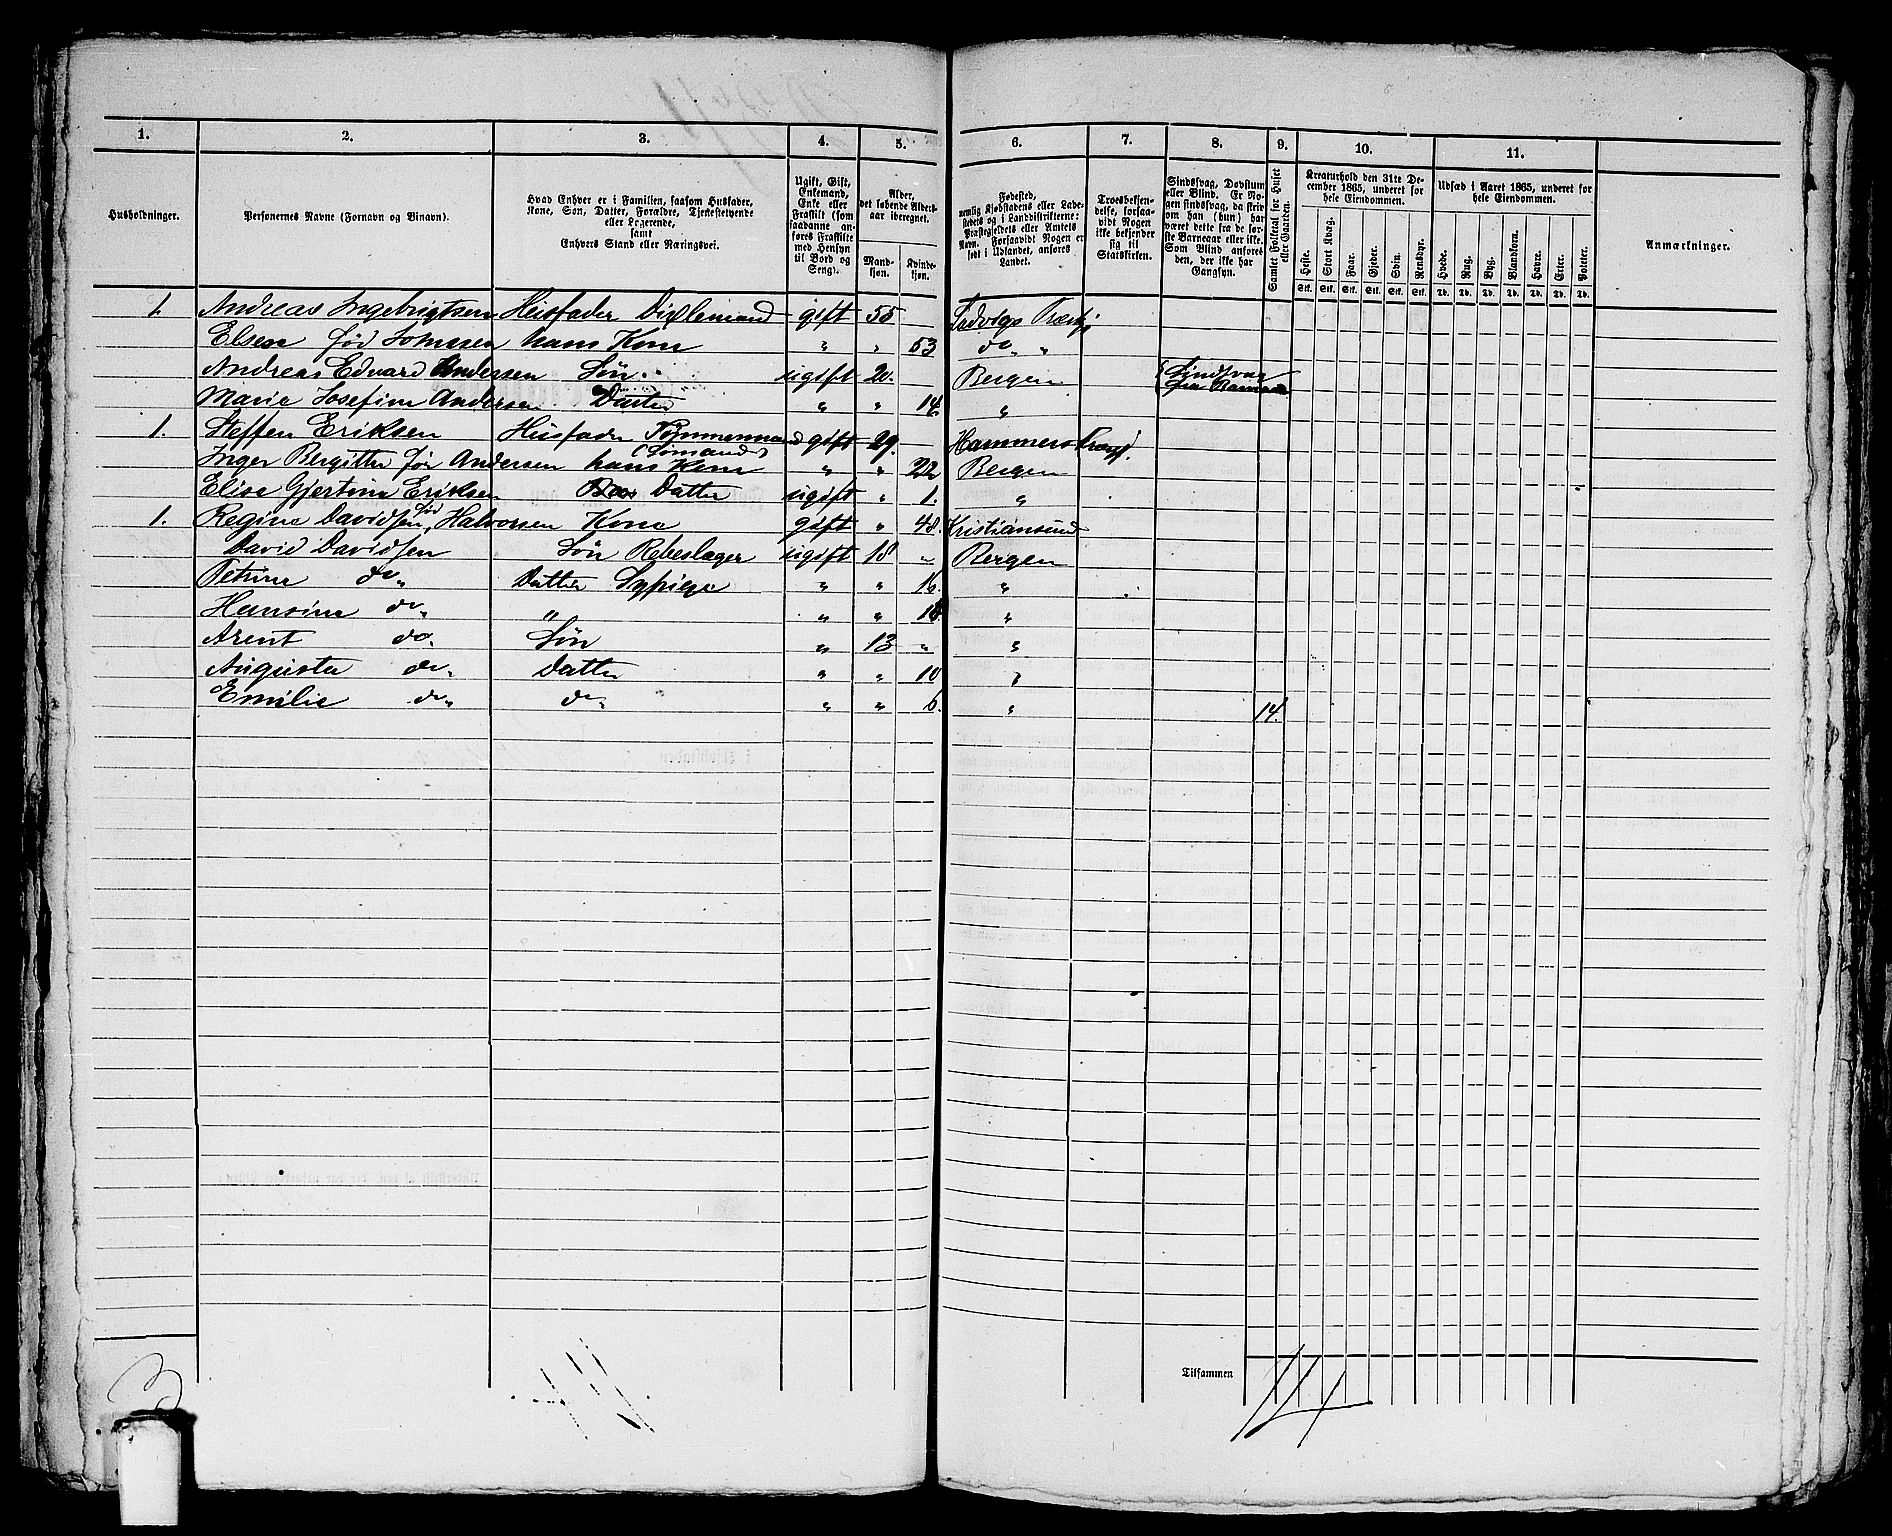 1. 2. 3. 4. 5. 6. 7. 8. 9. 10. 11.
Husholdninger.
Personernes Navne (Fornavn og Binavn).
Hvad Enhver er i Familien, saasom Husfader, Kone, Søn, Datter, Forældre, Tjenestetyende eller Logerende, samt Enhvers Stand eller Næringsvei.
Ugift, Gift, Enkemand, Enke eller Fraskilt (som saadanne anføres Fraskilte med Hensyn til Bord og Seng).
Alder, det løbende Alders-aar iberegnet.
Mandkjøn. Kvindekjøn.
Fødested, nemlig Kjøbstadens eller Ladestedets og i Landdistrikterne: Præstegjeldets eller Amtets Navn. Forsaavidt Nogen er født i Udlandet, anføres Landet.
Troesbekjendelse, forsaavidt Nogen ikke bekjender sig til Statskirken.
Sindssvag, Døvstum eller Blind. Er Nogen sindssvag, da skrives om han (hun) har været dette fra de første Barneaar eller ikke. Som Blind anføres den, der ikke har Gangsyn.
Samlet Folketal for Huset eller Gaarden.
Kreaturhold den 31te December 1865, underet for hele Eiendommen.
Heste. Stort Kvæg. Faar. Gjeder. Svin. Rensdyr.
Stk. Stk. Stk. Stk. Stk. Stk.
Udsæd i Aaret 1865, underet for hele Eiendommen.
Hvede. Rug. Byg. Blandkorn. Havre. Erter. Poteter.
Td. Td. Td. Td. Td. Td. Td.
Anmærkninger.
1. Andreas Ingebrigtsen Husfader Dixlemand gift 55 Ladvigs Præstgj
Elsea fød Tomasen hans Kone " " 53 do "
Andreas Edvard Andersen Søn. ugift 20. Bergen (Sindsvag fra Barnaar
Marie Josefine Andersen Datter " " 14 "
1. Steffen Eriksen Husfader Tømmermand gift 29. Hammers Præstgj.
Inger Bergitte fød Andersen hans Kone " " 22 Bergen
Elise Gjertine Eriksen Datter ugift " 1. "
1. Regine Davidsen, fød Halvorsen Kone gift " 48. Kristiansund
David Davidsen Søn Rebeslager ugift 18 " Bergen
Petrine do " Datter Sypige " " 16. "
Hansine do " " " " "
Arent do. Søn " 13 " "
Augusta do " Datter " " 10
Emilie do " do " " " 6. " 14.
Tilsammen 14
3